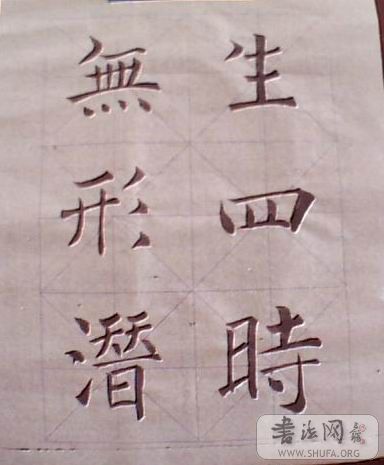 生四時
無形潛
書法网
WWW.SHUFA.ORG